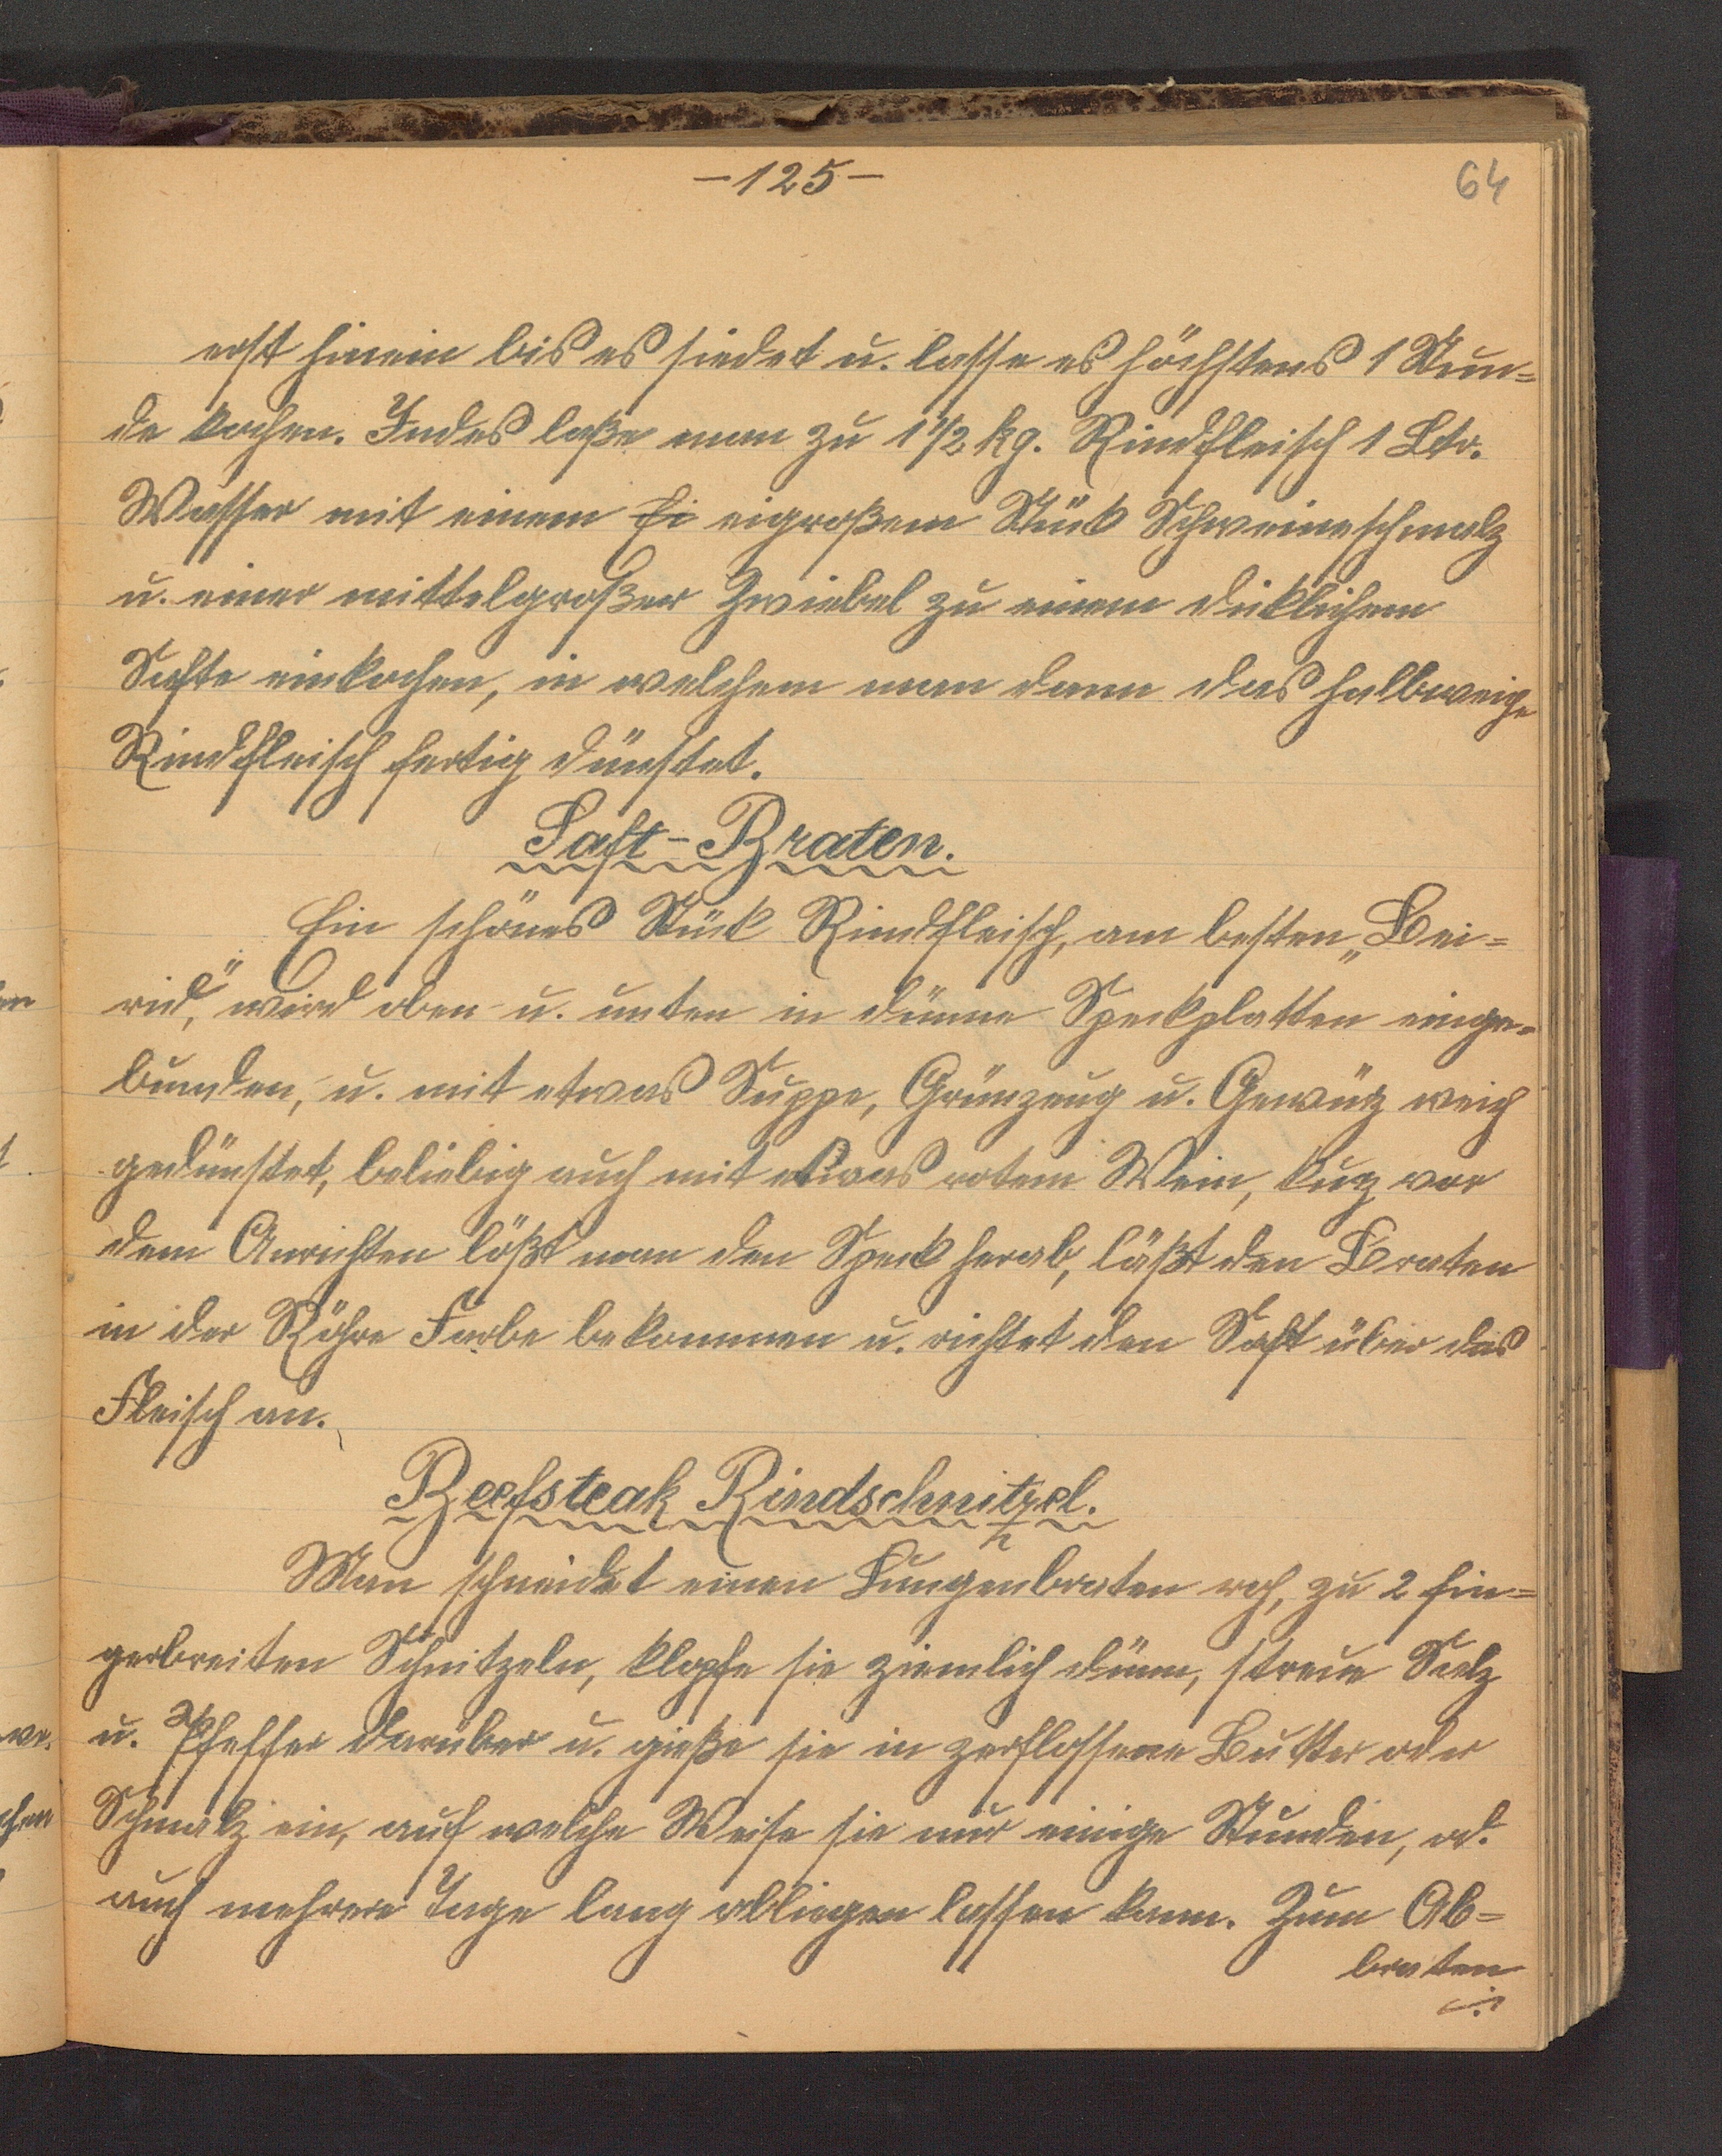 -125-
64
erst hinein bis es siedet u. lasse es höchstens 1 Stun=
de kochen. Indes laße man zu 1 1/2 kg. Rindfleisch 1 Ltr.
Wasser mit einem Ei eigroßem Stück Schweineschmalz
u. einer mittelgroßer Zwiebel zu einem dicklichem
Safte einkochen, in welchem man dann das halbweiche
Rindfleisch fertig dünstet.
Saft-Braten.
Ein schönes Stück Rindfleisch, am besten „Bei=
rid," wird oben u. unten in dünne Speckplatten einge=
bunden, u. mit etwas Suppe, Grünzeug u. Gewürz weich
gedünstet, beliebig auch mit etwas rotem Wein, kuz vor
dem Anrichten lößt man den Speck herab, läßt den Braten
in der Röhre Farbe bekommen u. richtet den Saft über das
Fleisch an.
Beefsteak Rindschnitzel.
Man schneidet einen Lungenbraten roh, zu 2 fin=
gerbreiten Schnitzeln, klopfe sie ziemlich dünn, streue Salz
u. Pfeffer darüber u. gieße sie in zerflossene Butter oder
Schmalz ein, auf welche Weise sie nur einige Stunden, od.
auch mehrere Tage lang abliegen lassen kann. Zum Ab=
braten